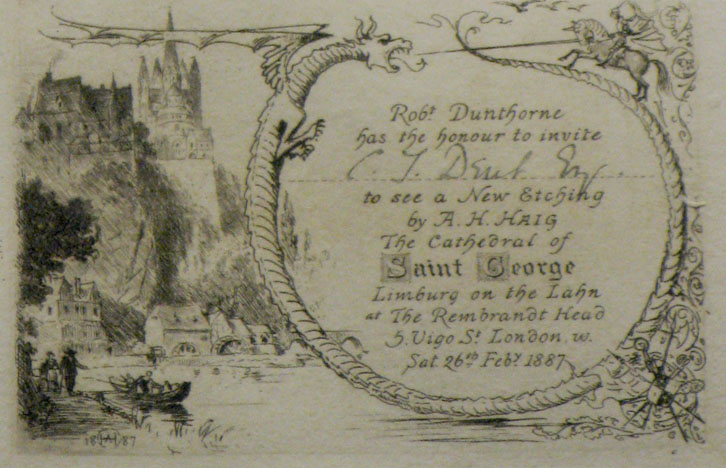 Robt. Dunthorne
has the honour to invite
C. T. Dent Esq.
to see a New Etching
by A. H. HAIG
The Cathedral of
Saint George
Limburg on the Lahn
at The Rembrandt Head
5, Vigo St London, W.
Sat 26th Feby 1887
18 87